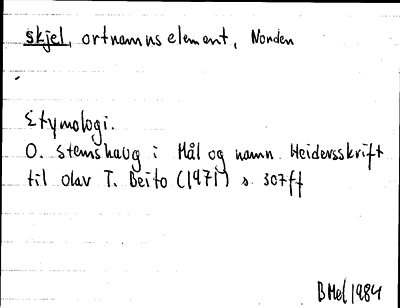 skjel, ortnamnselement, Norden
Etymologi.
O. Stemshaug i Mål og namn. Heidersskrift
til Olav T. Beito (1971) s. 307ff
BMel 1984